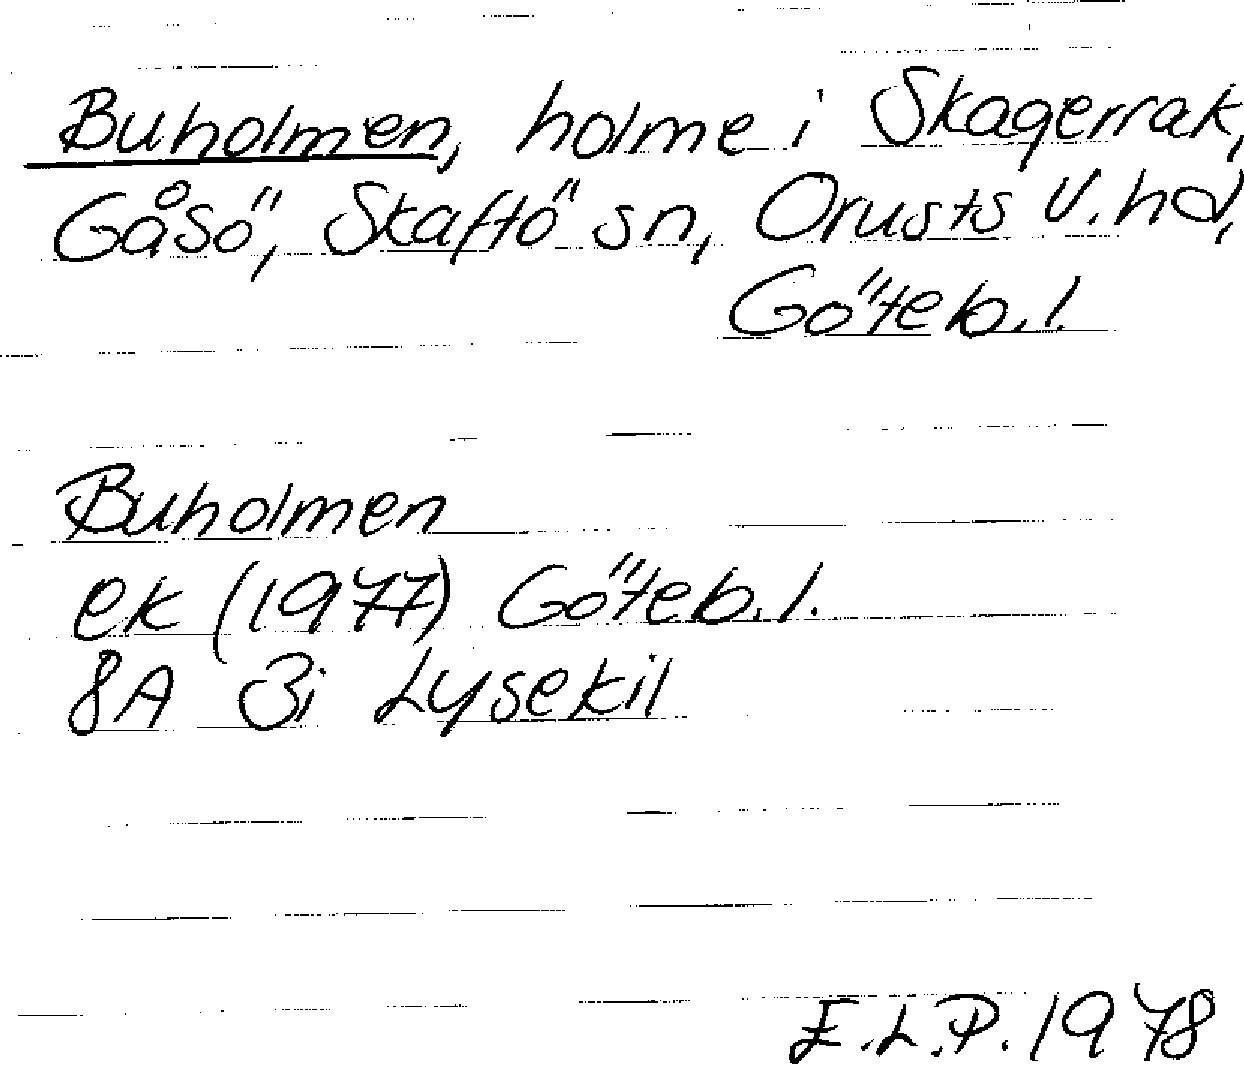 Buholmen, holme i Skagerrak,
Gåsö, Skaftö sn, Orusts V. hd,
Göteb. l.
Buholmen
ek (1977) Göteb. l.
8A 3i Lysekil
E.L.P. 1978